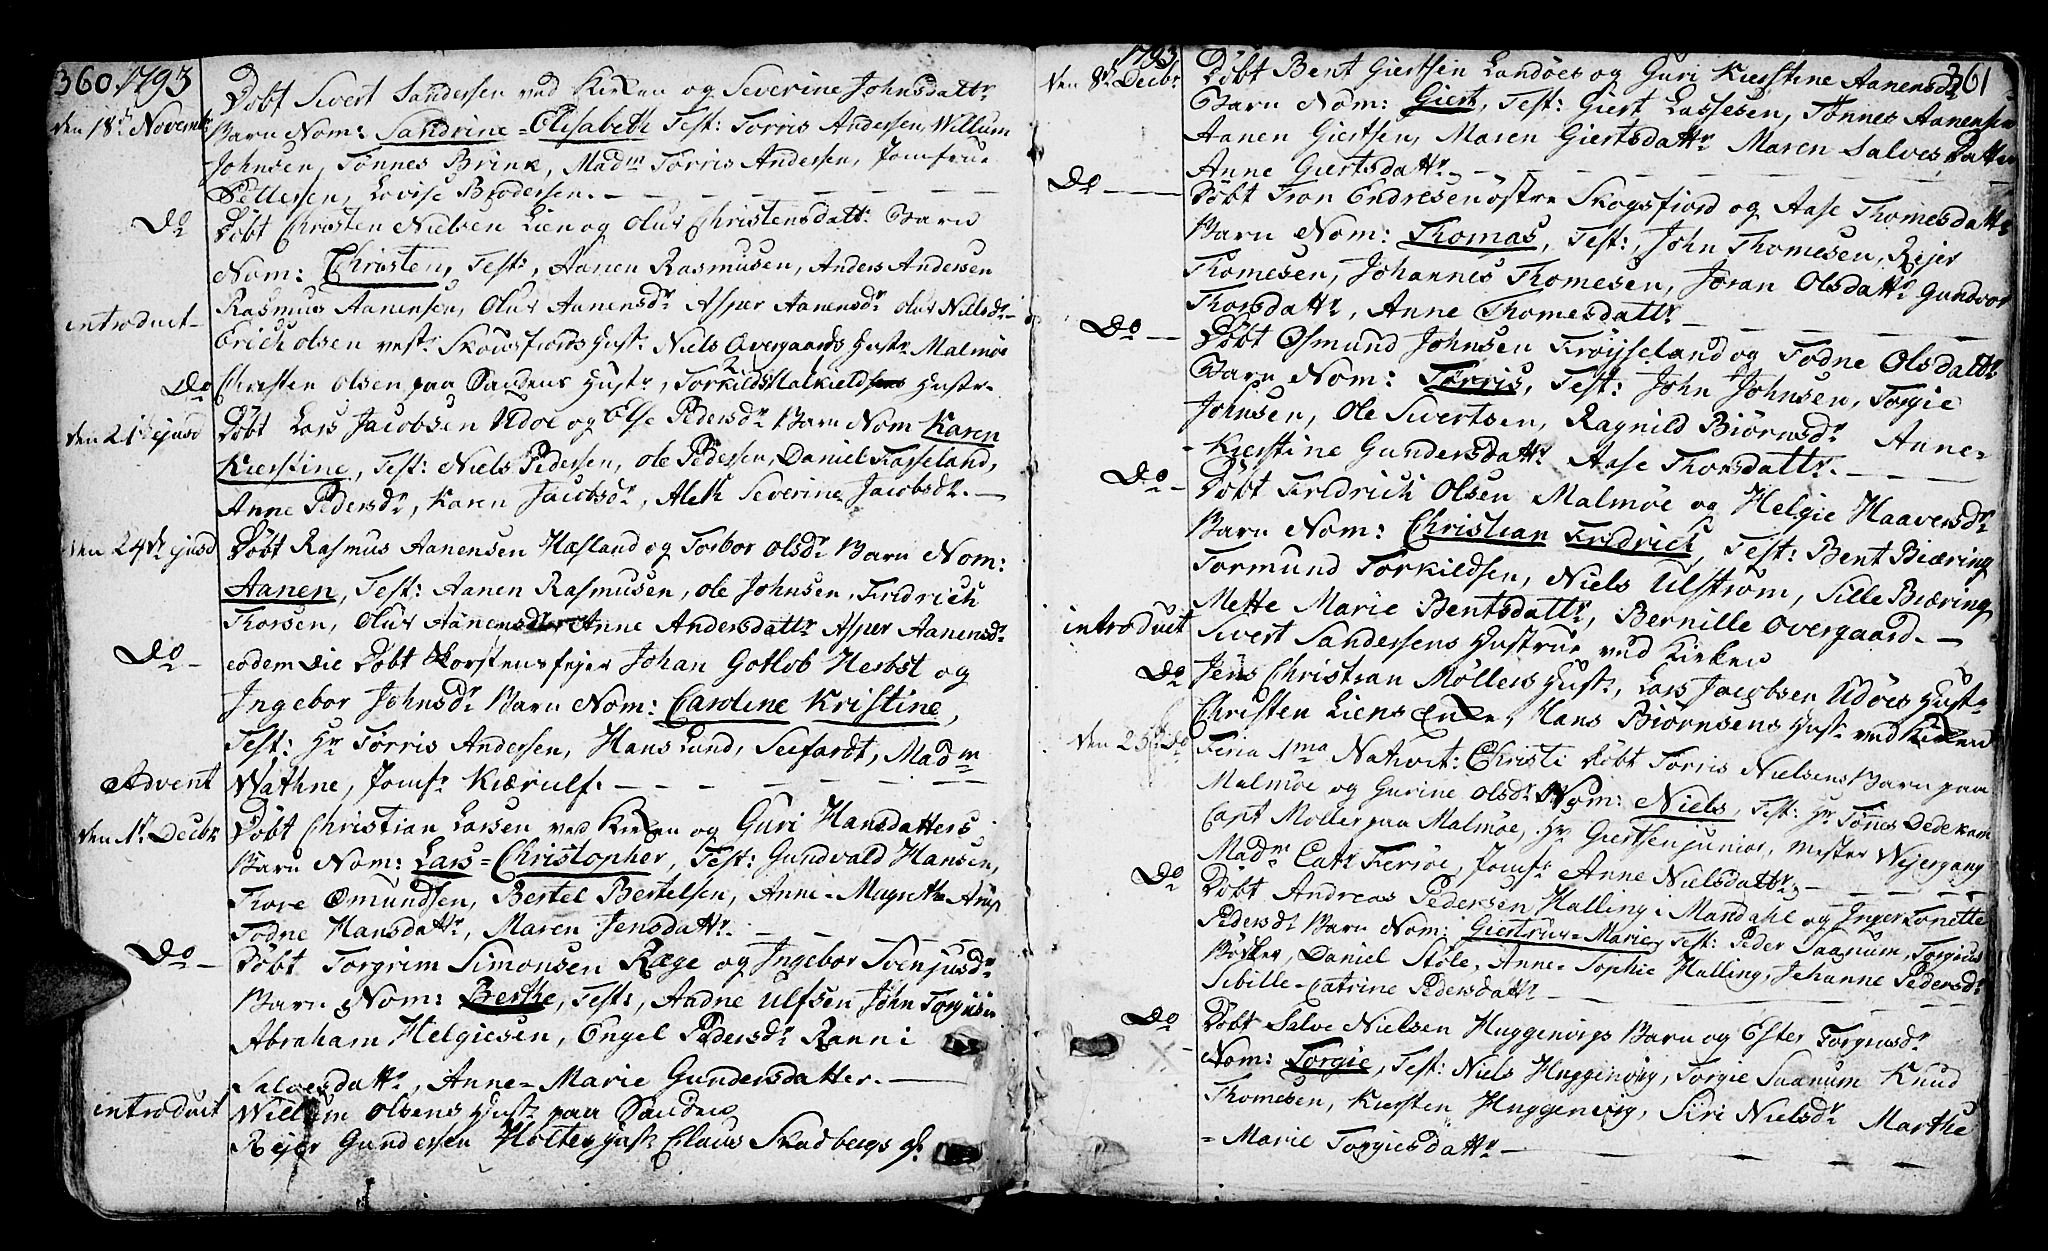 360. 1793
Døbt Sivert Sandersen ved Kirken og Severine Johnsdattr
den 18de Novembr Barn Nom: Sandrine=Elisabeth Test: Torris Andersen, Willum
Johnsen, Tønnes Brink, Madm Torris Andersen, Jomfrue
Pettersen, Lovise Brodersen.
Do Døbt Christen Nielsen Lien og Oluv Christensdattr Barn
Nom: Christen, Test: Aanen Rasmusen, Anders Andersen
Rasmus Aanensen, Oluv Aanensdr Asper Aanensdr Oluv Nillsdr
introduct Erich Olsen vestr Skousfiords Hustr Niels Overgaards Hustr Malmøe
Do Christen Olsen paa Sandens Hustr, Torkild Malkield Hustr
den 21de ejusd Døbt Lars Jacobsen Udøe og Else Pedersdr Barn Nom Karen
Kierstine, Test: Niels Pedersen, Ole Pedersen, Daniel Fasseland,
Anne Pedersdr, Karen Jacobsdr, Aleth Severine Jacobsdr.
den 24de ejusd Døbt Rasmus Aanensen Hæsland og Torbor Olsdr Barn Nom:
Aanen, Test: Aanen Rasmusen, Ole Johnsen, Fredrich
Thorsen, Oluv Aanensdtr Anne Andersdattr Asper Aanensdr
Do eodem die Døbt Skorstensfejer Johan Gotlob Herbst og
Ingebor Johnsdr Barn Nom: Caroline Kristine,
Test: Hr Tørris Andersen, Hans Lund, Seefardt, Madm
Wathne, Jomfr Kiærulf.
Advent
den 1te Decbr Døbt Christian Larsen ved Kirken og Guri Hansdatters
Barn Nom: Lars=Christopher, Test: Gundvald Hansen,
Tore Omundsen, Bertel Bertelsen, Anne-Magrethe Arup
Todne Hansdattr, Maren Jensdattr.
Do Døbt Torgrim Simonsen Røge og Ingebor Svenjusdr
Barn Nom: Berthe, Test: Andne Ulfsen John Torgiusen
Abraham Helgiesen, Engel Pedersdr Ranni
Salvesdattr, Anne=Marie Gundersdatter.
introduct Willum Olsens Hustr paa Sanden
Rejer Gundersen Holtes Hustr Claus Skadbergs H:

1793 361
den 8de Decbr Døbt Bent Giertsen Landøes og Guri Kierstine Aanensdr
Barn Nom: Giert, Test: Giert Lassesen, Tønnes Aanensen
Aanen Giertsen, Maren Giertsdattr Maren Salves Datter
Anne Giertsdattr
Do Døbt Tron Endresen østre Skogsfiord og Aase Thomesdattr
Barn Nom: Thomas, Test: John Thomesen, Rejer
Thomesen, Johannes Thomesen, Joran Olsdattr Gundvor
Thorsdattr, Anne Thomesdattr
Do Døbt Osmund Johnsen Frøyseland og Todne Olsdattr
Barn Nom: Tørris, Test: John Johnsen, Torgie
Johnsen, Ole Sivertsen, Ragnild Biørnsdr Anne-
Kierstine Gundersdattr Aase Thorsdattr.
Do Døbt Fredrich Olsen Malmøe og Helgie Haaversdr
Barn Nom: Christian Fredrich, Test: Bent Biæring
Tormund Torkildsen, Niels Ulstrøm, Sille Biæring,
Mette Marie Bentsdattr, Bernille Overgaard.
introduct Sivert Sandersens Hustrue ved Kirken
Do Jens Christian Møllers Hustr, Lars Jacobsen Udøes Hustr
Christen Liens Enke, Hans Biørnsens Hustr ved Kirken
den 25de Do Feria 1ma Nativit: Christi Døbt Torris Nielsens Barn paa
Malmøe og Gurine Olsdr Nom: Niels, Test: Hr Tønes Dedekam
Capt Møller paa Malmøe, Hr Giertsen junior, Mester Wejergang
Madm Catr Ferrøe, Jomfr Anne Nielsdattr,
Do Døbt Andreas Pedersen Halling i Mandahl og Inger Tonette
Pedersdr Barn Nom: Giertrue=Marie, Test: Peder Saanum, Torgius
Daniel Støle, Anne-Sophie Halling, Johanne Pedersdr
Sibille-Catrine Pedersdattr
Do Døbt Salve Nielsen Huggenvigs Barn og Ester Torgiusdr
Nom: Torgie, Test: Niels Huggenvig, Torgie Saanum Knud
Thomesen, Kiersten Huggenvig, Siri Nielsdr Marthe
=Marie Torgiesdattr